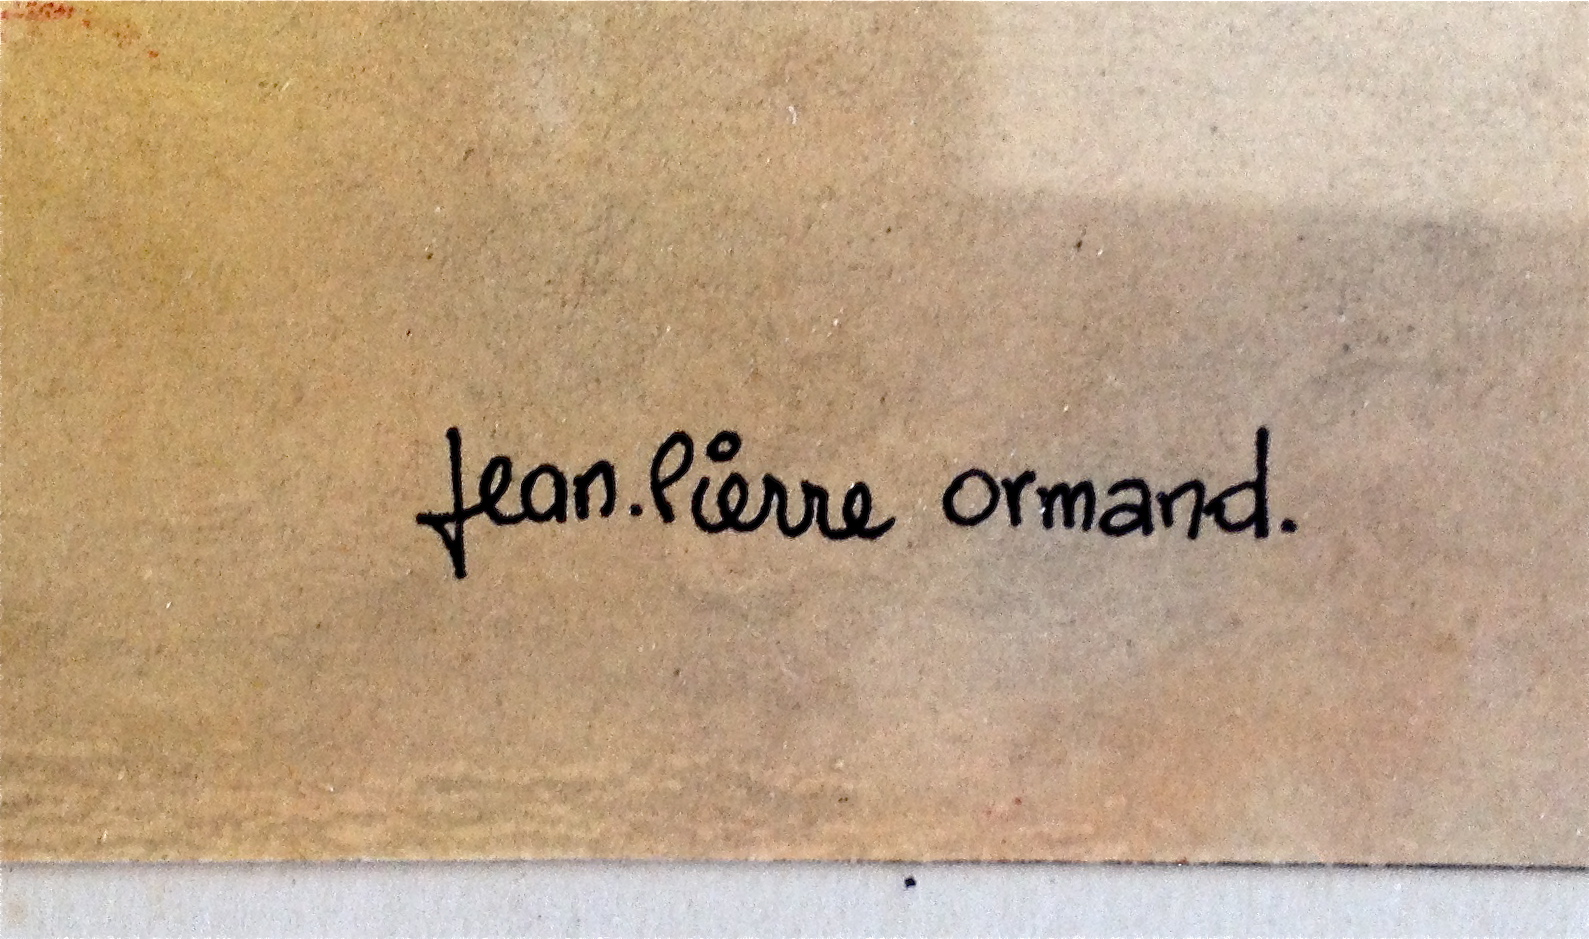 Jean.Pierre ormand.